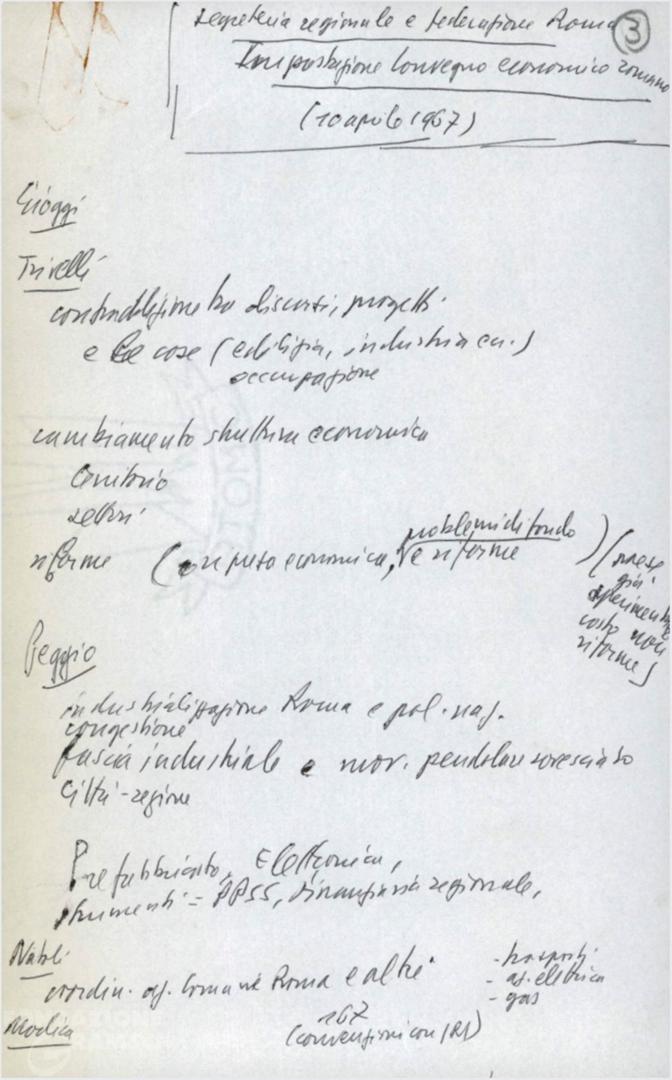 segreteria regionale e federazione Roma
3
Impostazione Convegno economico romano
(10 aprile 1967)
Cioggi
Trivelli
contraddizione tra discorsi, progetti
e le cose (edilizia, industria ecc.)
occupazione
cambiamento struttura economica
territorio
settori
problemi di fondo
riforme (ripresa economica, e riforme)
(paese
già
sperimentato
costo non
riforme)
Peggio
industrializzazione Roma e pol. naz.
congestione
fascia industriale e mov. pendolare rovesciato
Città-regione
Prefabbricato, Elettronica,
strumenti = PPSS, finanziaria regionale,
Natoli
coordin. az. Comune Roma e altre
- trasporti
- az. elettrica
- gas
167
Modica
(convenzioni con IRI)